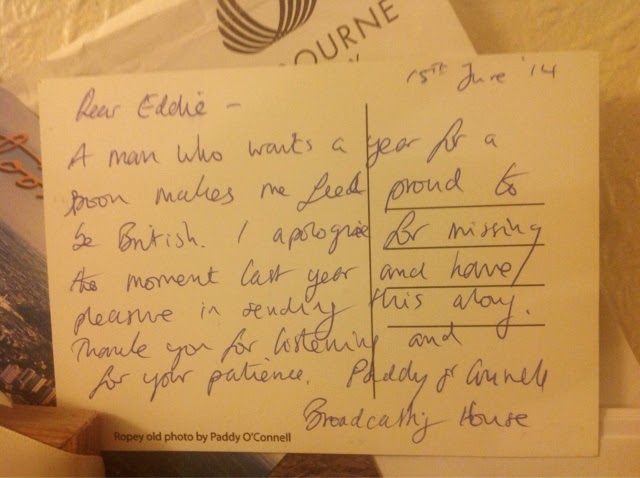 OURNE
15th June '14
Dear Eddie -
A man who wants a year for a
spoon makes me feel proud to
be British. I apologise for missing
the moment last year and have
pleasure in sending this along.
Thank you for listening and
for your patience. Paddy O'Connell
Broadcasting House
Ropey old photo by Paddy O'Connell